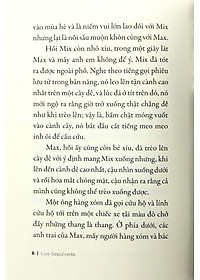 vào mùa hè và là niềm vui lớn lao đối với Mix
nhưng lại là nỗi sầu muộn khôn cùng với Max.
Hồi Mix còn nhỏ xíu, trong một giây lát
Max và mấy anh em không để ý, Mix đã tót
ra được ngoài phố. Nghe theo tiếng gọi phiêu
lưu từ trong bản năng, nó leo lên một cây dẻ, trèo
từ cành này sang cành nọ, và lúc đã ở tít trên đó, nó
mới ngộ ra rằng giờ trở xuống thật chẳng dễ
như khi trèo lên; vậy là, bấm chặt móng vuốt
vào cành cây, nó bắt đầu cất tiếng meo meo
inh ỏi để cầu cứu.
Max, hồi ấy cũng còn bé xíu, đã trèo lên
cây dẻ với ý định mang Mix xuống nhưng, khi
lên đến đỉnh cành cao nhất, cậu nhìn xuống dưới
rồi nổi hoa mắt chóng mặt, cậu nhận ra rằng cả
mình cũng không thể trèo xuống được.
Một ông hàng xóm đã gọi cứu hộ và lính
cứu hộ tới trên một chiếc xe tải màu đỏ chở
đầy những thang là thang. Ở phía dưới, các
anh trai của Max, mấy người hàng xóm và bác
8 | Luis Sepúlveda